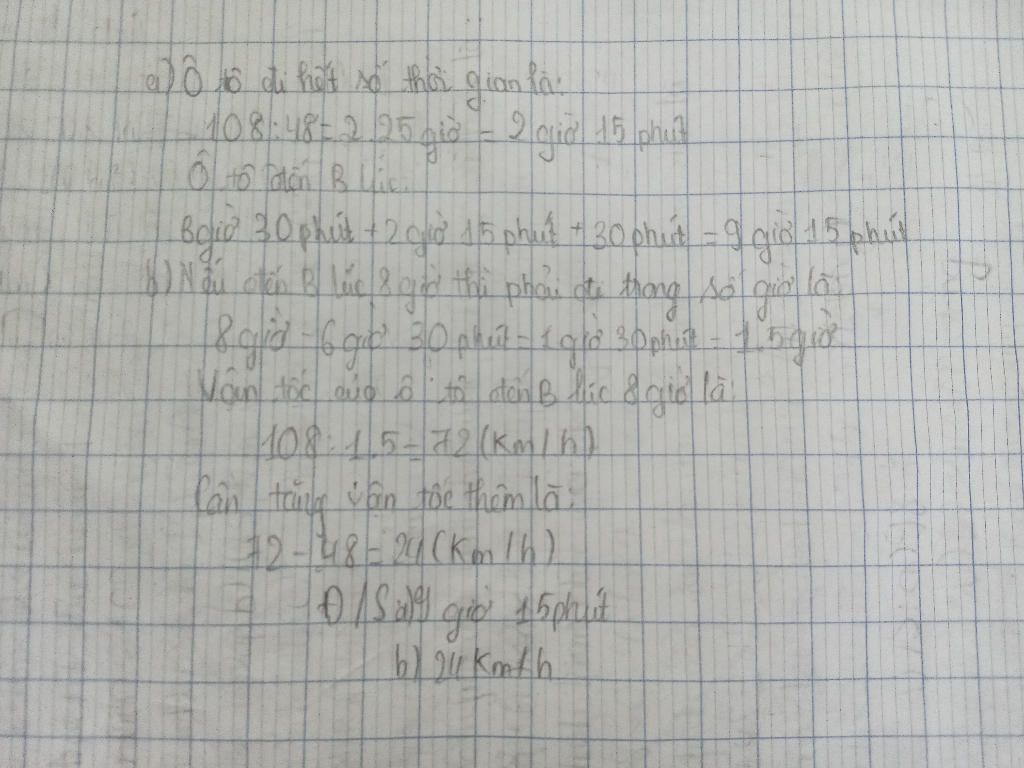 a) Ô tô đi hết số thời gian là:
108 : 48 = 2,25 giờ = 2 giờ 15 phút
Ô tô đến B lúc:
6 giờ 30 phút + 2 giờ 15 phút + 30 phút = 9 giờ 15 phút
b) Nếu đến B lúc 8 giờ thì phải đi trong số giờ là:
8 giờ - 6 giờ 30 phút = 1 giờ 30 phút = 1.5 giờ
Vận tốc của ô tô đến B lúc 8 giờ là:
108 : 1.5 = 72 (km/h)
Cần tăng vận tốc thêm là:
72 - 48 = 24 (km/h)
Đ/S a) 9 giờ 15 phút
b) 24 km/h